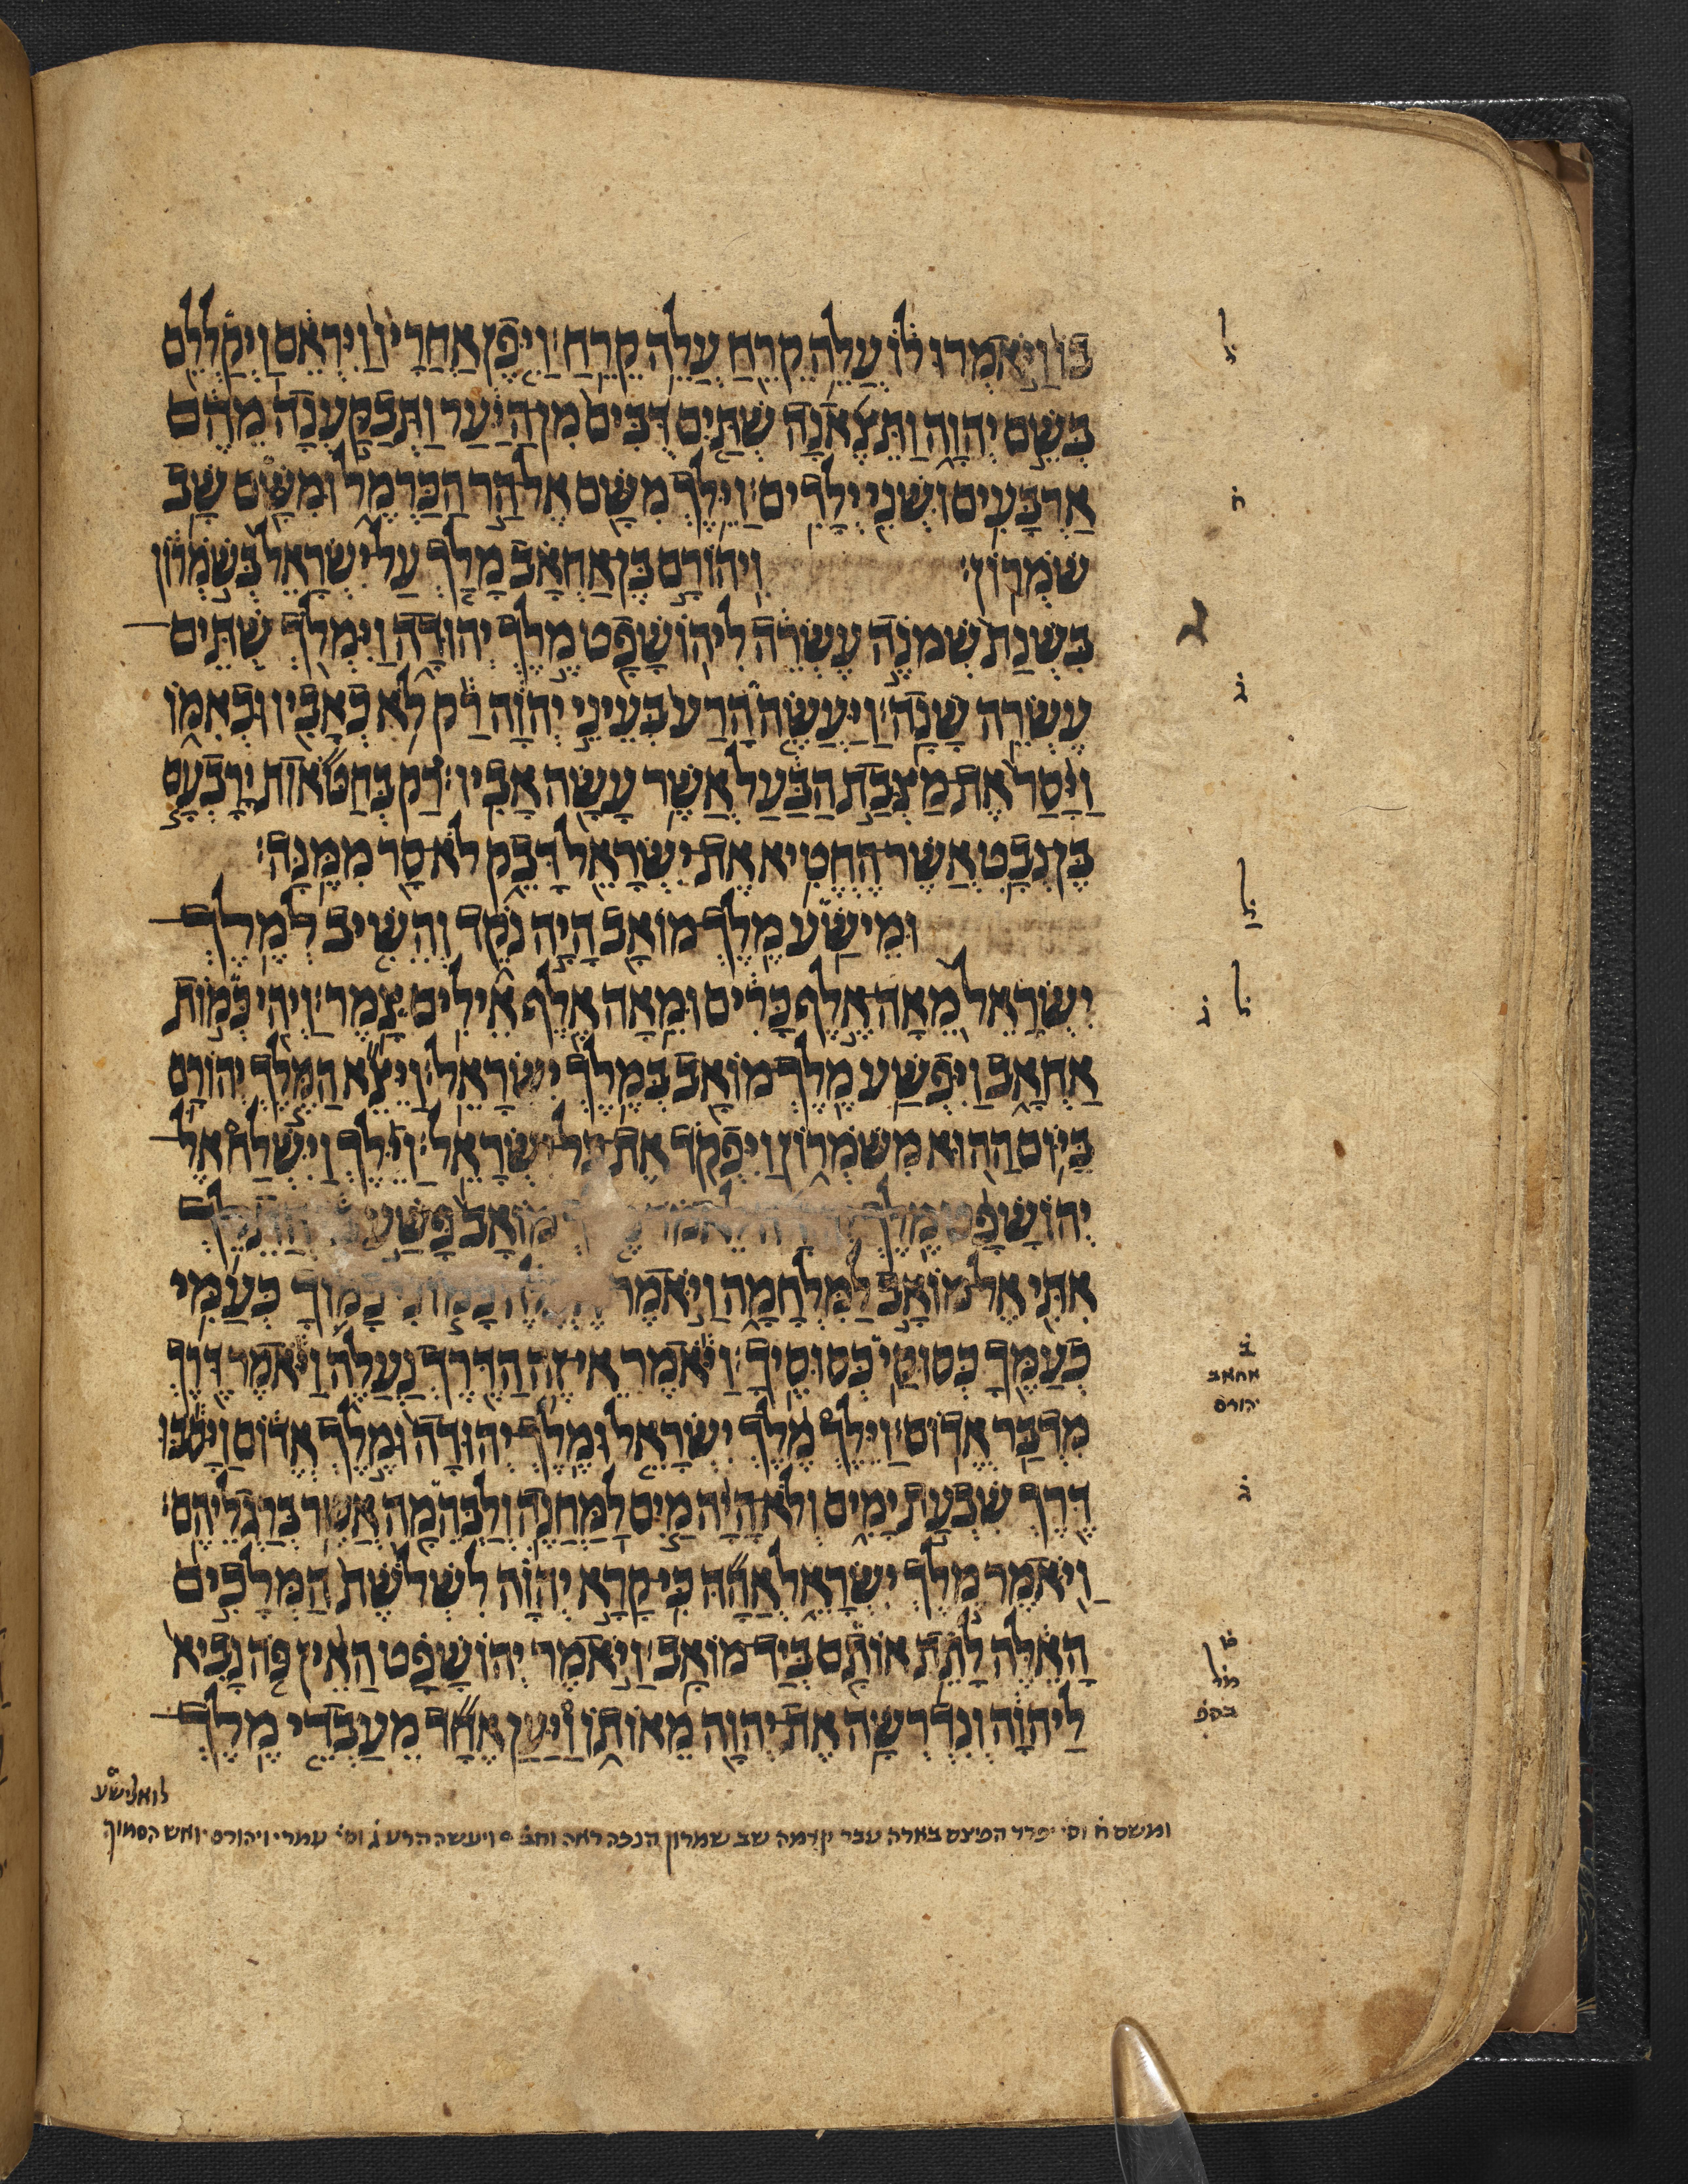 בּוֹ וַיֹּאמְרוּ לוֹ עֲלֵה קֵרֵחַ עֲלֵה קֵרֵחַ׃ וַיִּפֶן אַחֲרָיו וַיִּרְאֵם וַיְקַלְלֵם
בְּשֵׁם יְהוָה וַתֵּצֶאנָה שְׁתַּיִם דֻּבִּים מִן הַיַּעַר וַתְּבַקַּעְנָה מֵהֶם
אַרְבָּעִים וּשְׁנֵי יְלָדִים׃ וַיֵּלֶךְ מִשָּׁם אֶל הַר הַכַּרְמֶל וּמִשָּׁם שָׁב
שֹׁמְרוֹן׃ וִיהוֹרָם בֶּן אַחְאָב מָלַךְ עַל יִשְׂרָאֵל בְּשֹׁמְרוֹן
בִּשְׁנַת שְׁמֹנֶה עֶשְׂרֵה לִיהוֹשָׁפָט מֶלֶךְ יְהוּדָה וַיִּמְלֹךְ שְׁתֵּים
עֶשְׂרֵה שָׁנָה׃ וַיַּעֲשֶׂה הָרַע בְּעֵינֵי יְהוָה רַק לֹא כְאָבִיו וּכְאִמּוֹ
וַיָּסַר אֶת מַצְּבַת הַבַּעַל אֲשֶׁר עָשָׂה אָבִיו׃ רַק בְּחַטֹּאות יָרָבְעָם
בֶּן נְבָט אֲשֶׁר הֶחֱטִיא אֶת יִשְׂרָאֵל דָּבֵק לֹא סָר מִמֶּנָּה׃
וּמֵישַׁע מֶלֶךְ מוֹאָב הָיָה נֹקֵד וְהֵשִׁיב לְמֶלֶךְ
יִשְׂרָאֵל מֵאָה אֶלֶף כָּרִים וּמֵאָה אֶלֶף אֵילִים צָמֶר׃ וַיְהִי כְּמוֹת
אַחְאָב וַיִּפְשַׁע מֶלֶךְ מוֹאָב בְּמֶלֶךְ יִשְׂרָאֵל׃ וַיֵּצֵא הַמֶּלֶךְ יְהוֹרָם
בַּיּוֹם הַהוּא מִשֹּׁמְרוֹן וַיִּפְקֹד אֶת כל ישְׂרָאֵל׃ וַיֵּלֶךְ וַיִּשְׁלַח אֶל
יְהוֹשָׁפָט מֶלֶךְ מוֹאָב פָּשַׁע
אִתִּי אֶל מוֹאָב לַמִּלְחָמָה וַיֹּאמֶר כָּמוֹנִי כָמוֹךָ כְּעַמִּי
כְעַמֶּךָ כְּסוּסַי כְּסוּסֶיךָ׃ וַיֹּאמֶר אֵי זֶה הַדֶּרֶךְ נַעֲלֶה וַיֹּאמֶר דֶּרֶךְ
מִדְבַּר אֱדוֹם׃ וַיֵּלֶךְ מֶלֶךְ יִשְׂרָאֵל וּמֶלֶךְ יְהוּדָה וּמֶלֶךְ אֱדוֹם וַיָּסֹבּוּ
דֶּרֶךְ שִׁבְעַת יָמִים וְלֹא הָיָה מַיִם לַמַּחֲנֶה וְלַבְּהֵמָה אֲשֶׁר בְּרַגְלֵיהֶם׃
וַיֹּאמֶר מֶלֶךְ יִשְׂרָאֵל אֲהָהּ כִּי קָרָא יְהוָה לִשְׁלֹשֶׁת הַמְּלָכִים
הָאֵלֶּה לָתֵת אוֹתָם בְּיַד מוֹאָב׃ וַיֹּאמֶר יְהוֹשָׁפָט הַאֵין פֹּה נָבִיא
לַיהוָה וְנִדְרְשָׁה אֶת יְהוָה מֵאוֹתוֹ וַיַּעַן אֶחָד מֵעַבְדֵי מֶלֶךְ
ל
ח
ג
ל
ל
ג
ב
אחאב
יהורם
ג
ומשם ח וס׳ יפרד עבר קדמה שב שמרון הנכה ראה ויעשה הרע ג וס׳ עמרי ויהורם